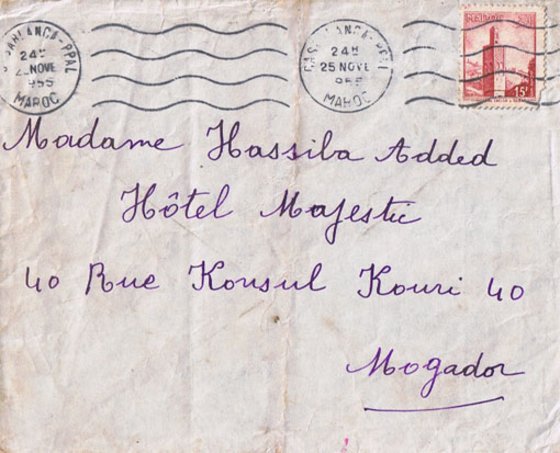 CASABLANCA-PPAL
24H
25 NOVE
1955
MAROC
CASABLANCA-PPAL
24H
25 NOVE
1955
MAROC
15F
Madame Hassiba Added
Hôtel Majestic
40 Rue Konsul Kouri 40
Mogador